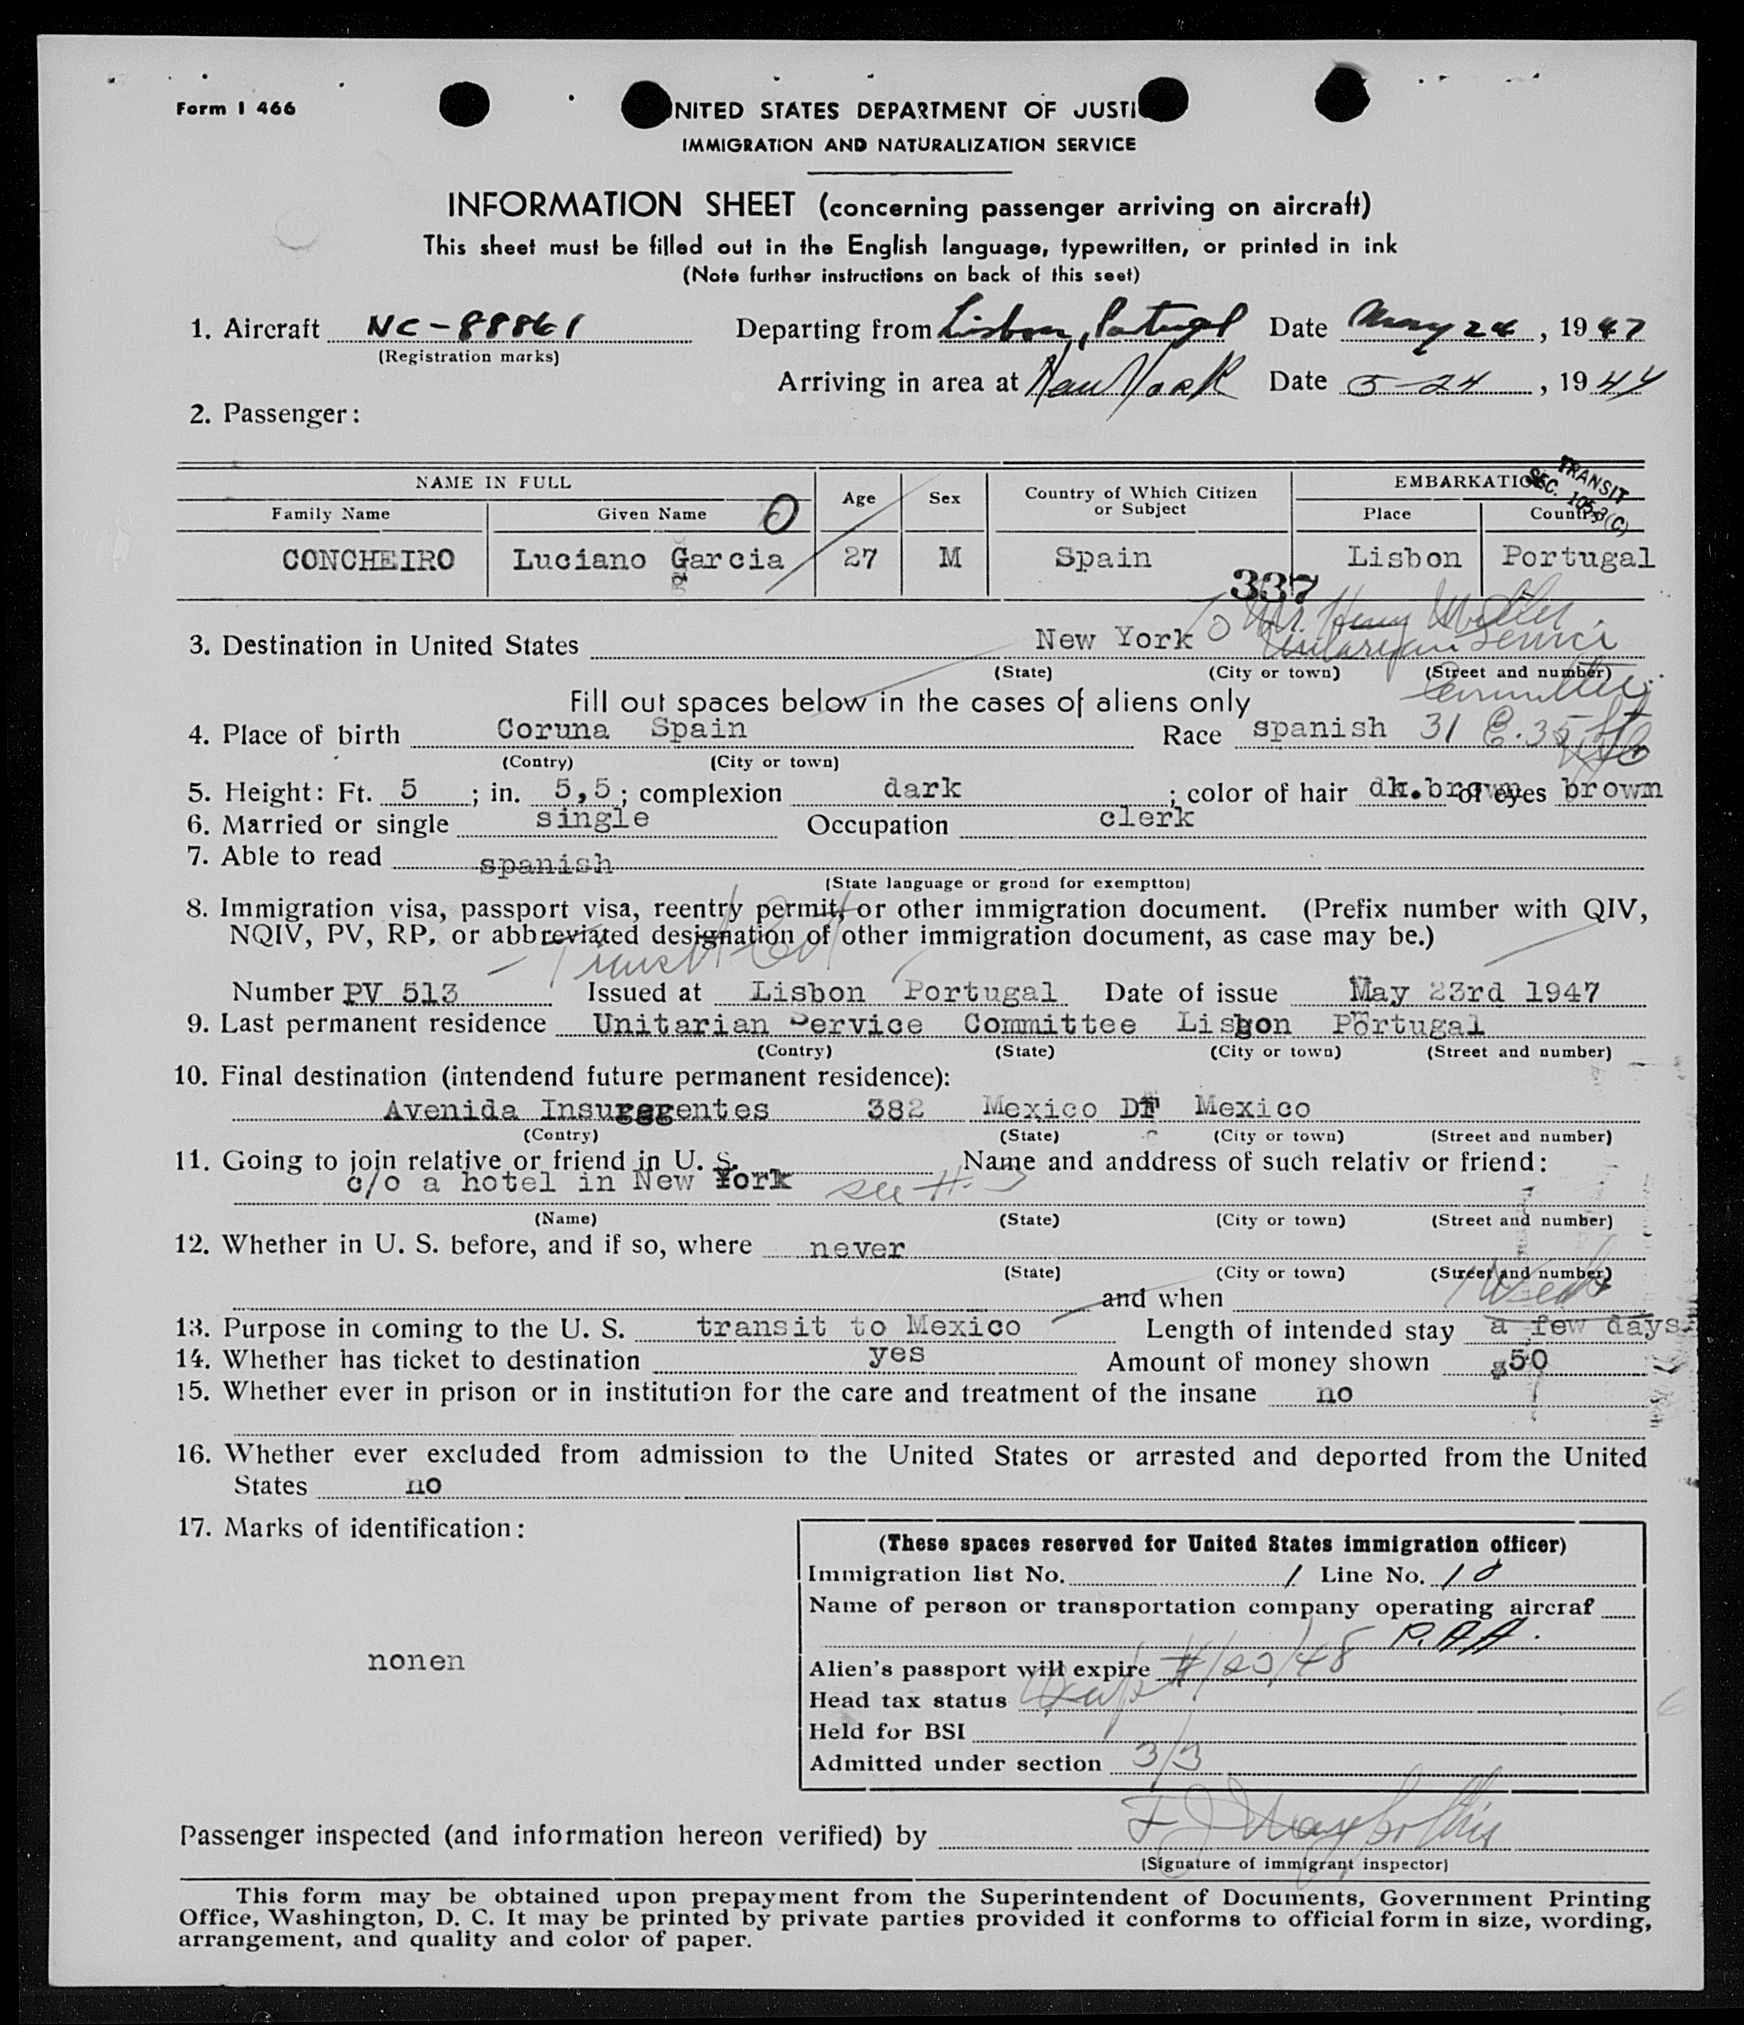 Form I 466
NITED STATES DEPARTMENT OF JUSTI
IMMIGRATION AND NATURALIZATION SERVICE
INFORMATION SHEET (concerning passenger arriving on aircraft)
This sheet must be filled out in the English language, typewritten, or printed in ink
(Note further instructions on back of this seet)
1. Aircraft NC-88861 Departing from Lisbon, Portugal Date May 24, 1947
(Registration marks)
Arriving in area at New York Date 5-24, 1944
2. Passenger:
NAME IN FULL Age Sex Country of Which Citizen or Subject EMBARKATION
TRANSIT SEC. 105.3(C)
Family Name Given Name Place Country
CONCHEIRO Luciano Garcia 27 M Spain Lisbon Portugal
337
Mr. Henry
3. Destination in United States New York Unitarian Service
(State) (City or town) (Street and number)
Committee
Fill out spaces below in the cases of aliens only
4. Place of birth Coruna Spain Race spanish 31 E. 35 St
(Contry) (City or town)
5. Height: Ft. 5; in. 5,5; complexion dark; color of hair dk.brown of eyes brown
6. Married or single single Occupation clerk
7. Able to read spanish
(State language or groud for exemptton)
8. Immigration visa, passport visa, reentry permit, or other immigration document. (Prefix number with QIV,
NQIV, PV, RP, or abbreviated designation of other immigration document, as case may be.)
Transit
Number PV 513 Issued at Lisbon Portugal Date of issue May 23rd 1947
9. Last permanent residence Unitarian Service Committee Lisbon Portugal
(Contry) (State) (City or town) (Street and number)
10. Final destination (intendend future permanent residence):
Avenida Insurgentes 382 Mexico DF Mexico
(Contry) (State) (City or town) (Street and number)
11. Going to join relative or friend in U. S. Name and anddress of such relativ or friend:
c/o a hotel in New York see # 3
(Name) (State) (City or town) (Street and number)
12. Whether in U. S. before, and if so, where never
(State) (City or town) (Street and number)
and when
13. Purpose in coming to the U. S. transit to Mexico Length of intended stay a few days
14. Whether has ticket to destination yes Amount of money shown $50
15. Whether ever in prison or in institution for the care and treatment of the insane no
16. Whether ever excluded from admission to the United States or arrested and deported from the United
States no
17. Marks of identification:
nonen
(These spaces reserved for United States immigration officer)
Immigration list No. 1 Line No. 10
Name of person or transportation company operating aircraf
P.A.A.
Alien's passport will expire 4/23/48
Head tax status
Held for BSI
Admitted under section 3/3
Passenger inspected (and information hereon verified) by
(Signature of immigrant inspector)
This form may be obtained upon prepayment from the Superintendent of Documents, Government Printing
Office, Washington, D. C. It may be printed by private parties provided it conforms to official form in size, wording,
arrangement, and quality and color of paper.